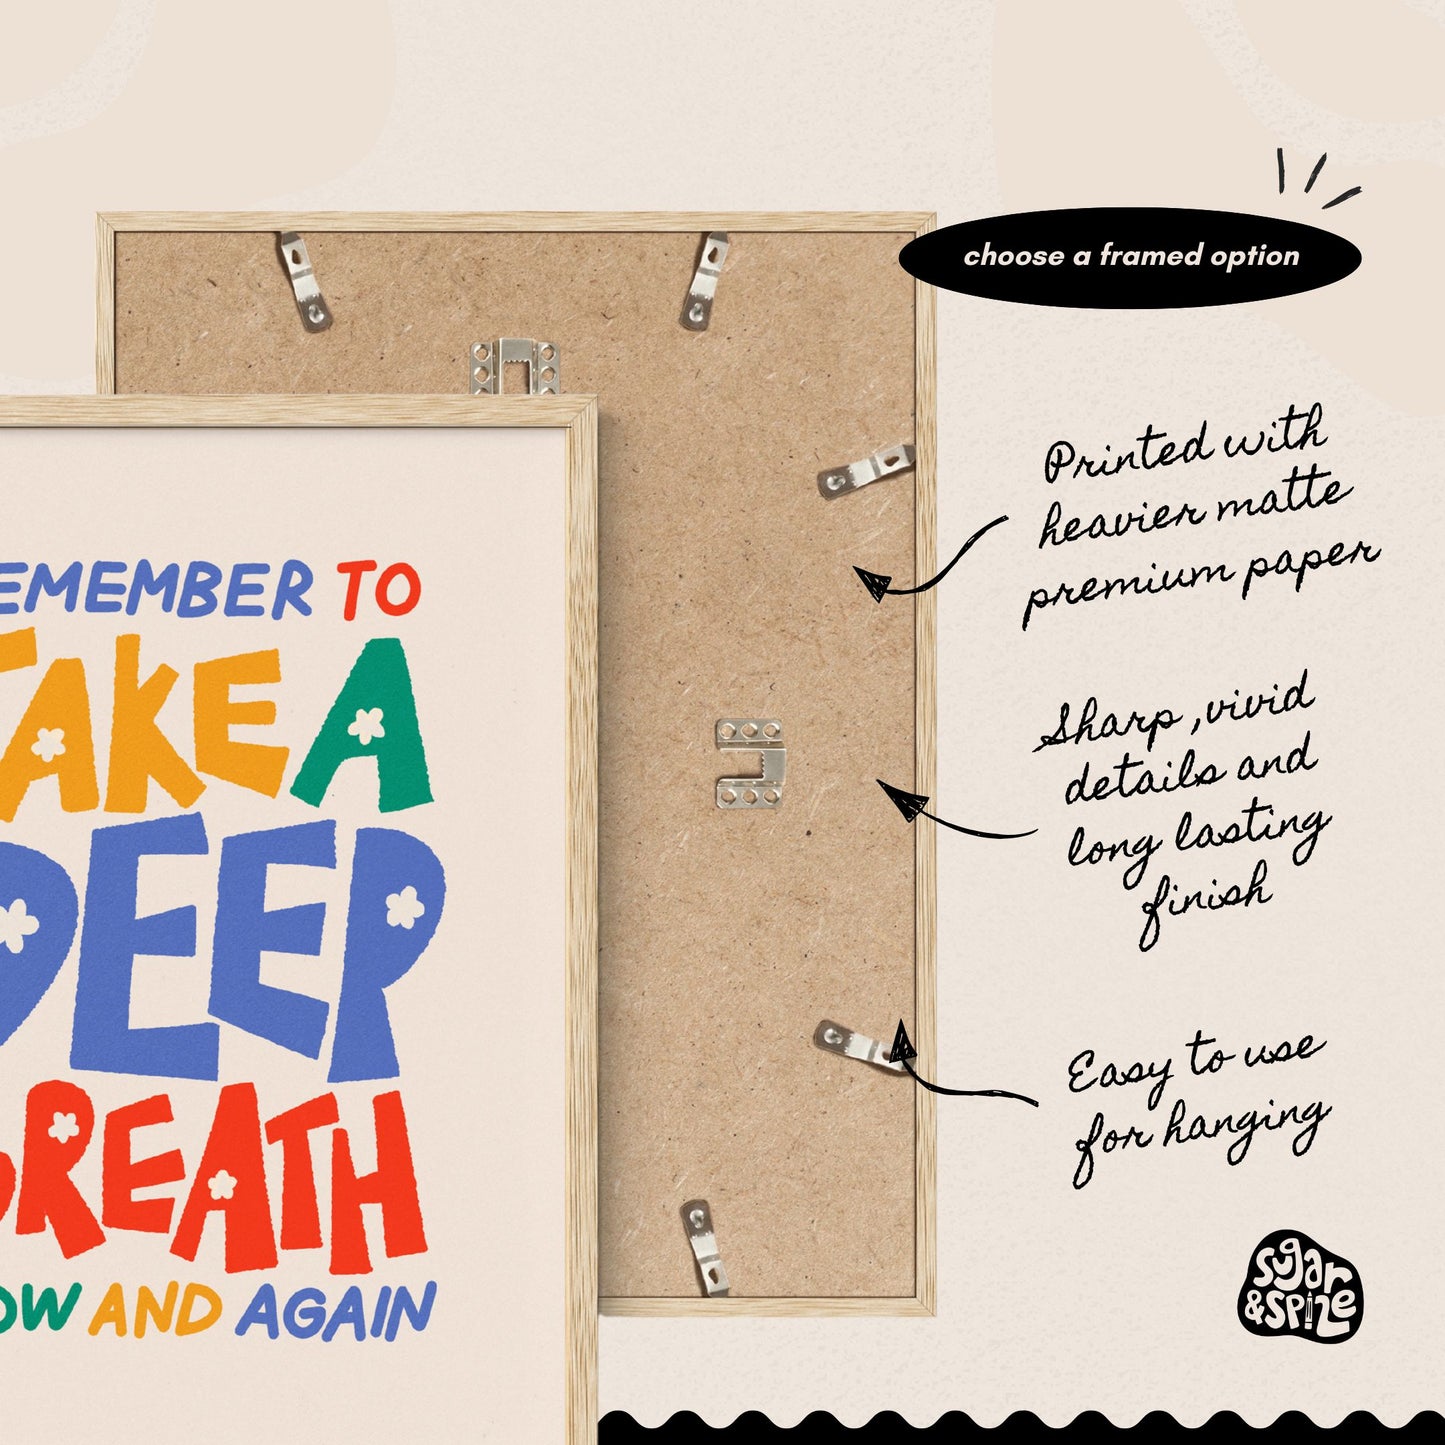 choose a framed option
Printed with
heavier matte
premium paper
Sharp ,vivid
details and
long lasting
finish
Easy to use
for hanging
EMEMBER TO
TAKE A
DEEP
BREATH
OW AND AGAIN
sugar
&SPIZE